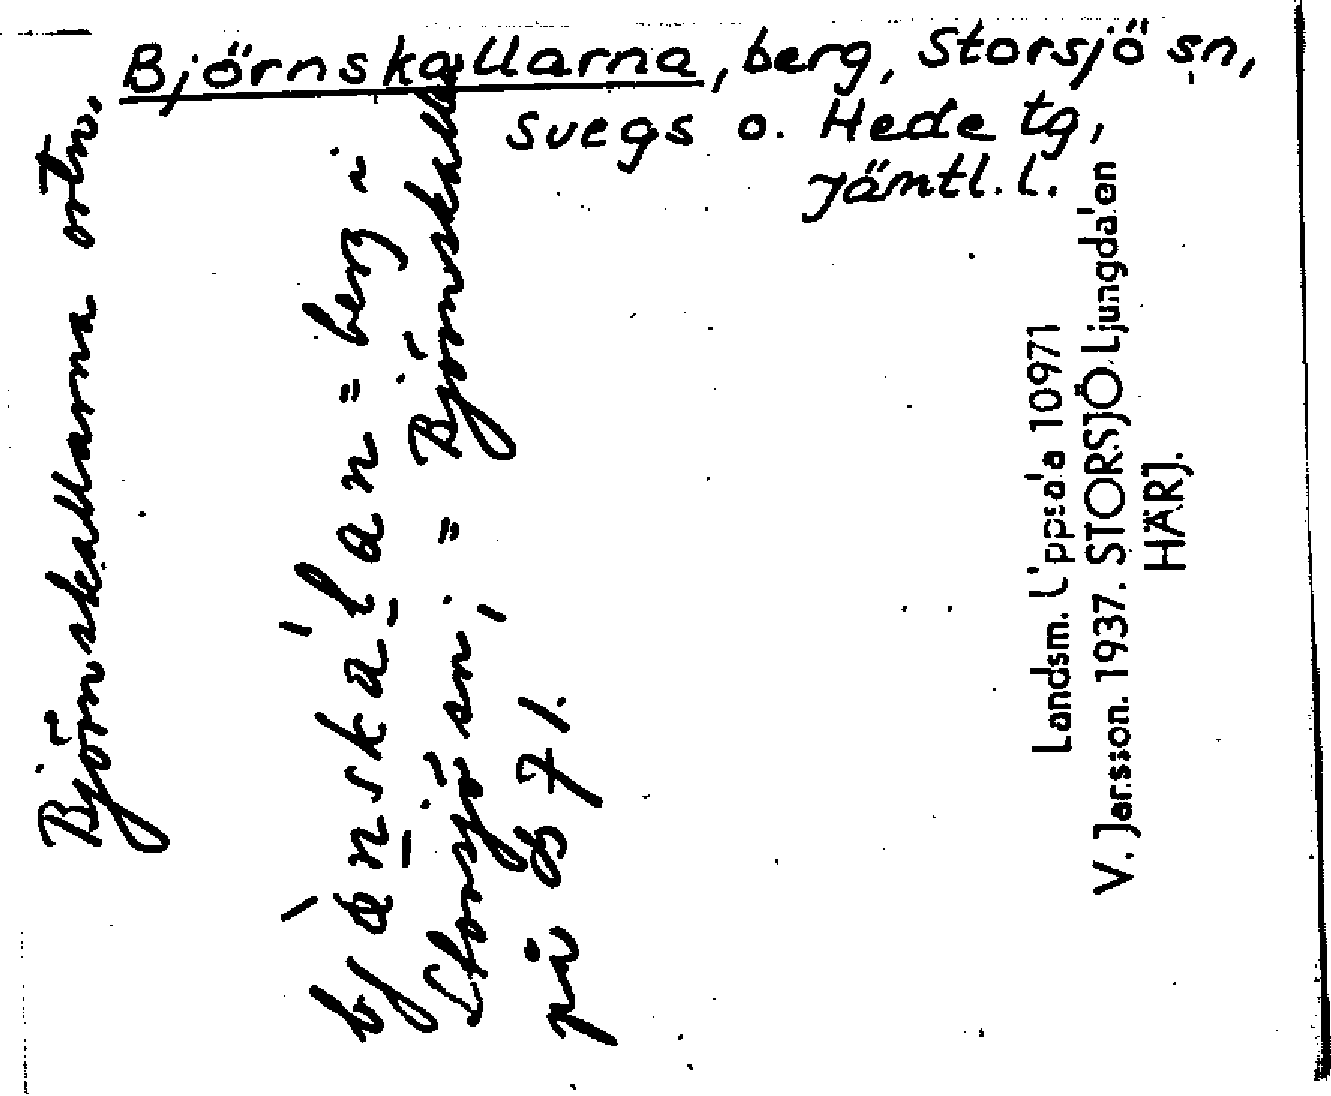 Björnskallarna, berg, Storsjö sn,
Svegs o. Hede tg,
Jämtl. l.
Björnskallarna ortn.
= berg i
Storsjö sn, = Björnskall
på B 71.
Landsm. Uppsala 10971
V. Jansson. 1937. STORSJÖ Ljungdalen
HÄRJ.